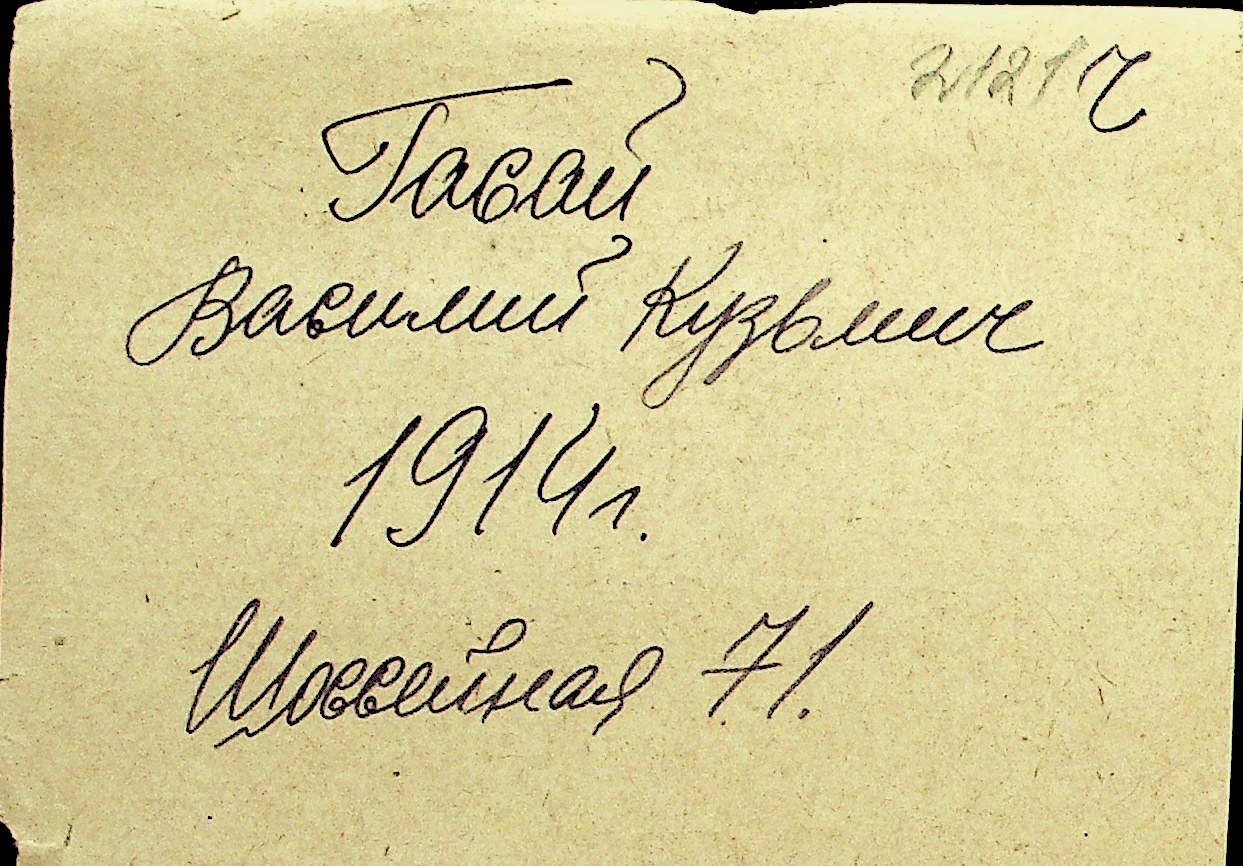 2121 ч
Гасай
Василий Кузьмич
1914г.
Шоссейная 71.